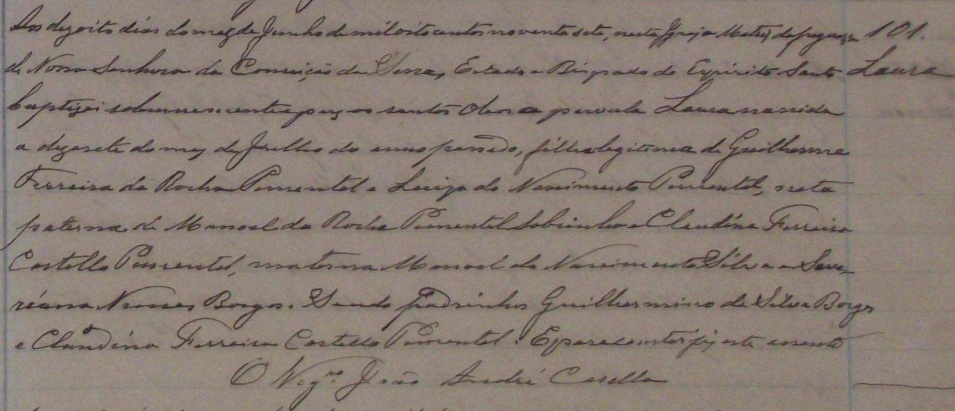 Aos dezoito dias do mez de Junho de mil oito centos noventa sete, nesta Igreja Matriz da freguezia 101.
de Nossa Senhora da Conceição da Serra, Estado e Bispado do Espirito Santo Laura
baptizei solemnemente e puz os santos Oleos a parvula Laura nascida
a dezesete do mez de Julho do anno passado, filha legitima de Guilherme
Ferreira da Rocha Pimentel e Luiza do Nascimento Pimentel, neta
paterna de Manoel da Rocha Pimentel Sobrinho e Claudina Ferreira
Castello Pimentel, materna Manoel do Nascimento Silva e Seve-
riana Nunes Borges. Sendo padrinhos Guilhermino da Silva Borges
e Claudina Ferreira Castello Pimentel. E para constar fiz este assento
O Vigrº João André Casella